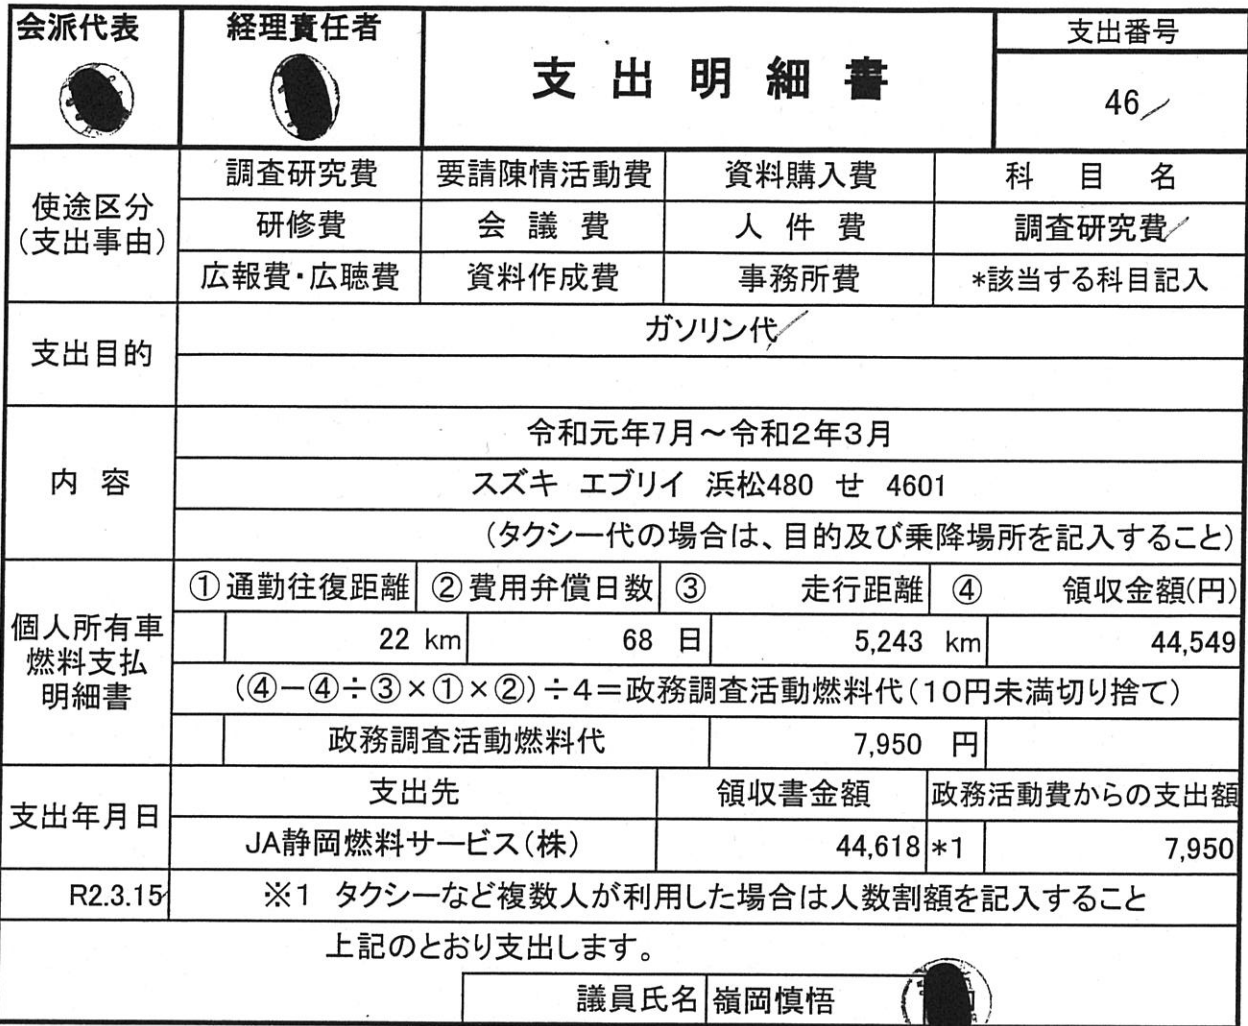 会派代表
経理責任者
支出明細書
支出番号
46
使途区分
(支出事由)
調査研究費 要請陳情活動費 資料購入費 科目名
研修費 会議費 人件費 調査研究費
広報費・広聴費 資料作成費 事務所費 *該当する科目記入
支出目的
ガソリン代
内容
令和元年7月~令和2年3月
スズキ エブリイ 浜松480 せ 4601
(タクシー代の場合は、目的及び乗降場所を記入すること)
個人所有車
燃料支払
明細書
①通勤往復距離 ②費用弁償日数 ③ 走行距離 ④ 領収金額(円)
22 km 68 日 5,243 km 44,549
(④-④÷③×①×②)÷4=政務調査活動燃料代(10円未満切り捨て)
政務調査活動燃料代 7,950 円
支出年月日
支出先 領収書金額 政務活動費からの支出額
JA静岡燃料サービス(株) 44,618 *1 7,950
R2.3.15 ※1 タクシーなど複数人が利用した場合は人数割額を記入すること
上記のとおり支出します。
議員氏名 嶺岡慎悟